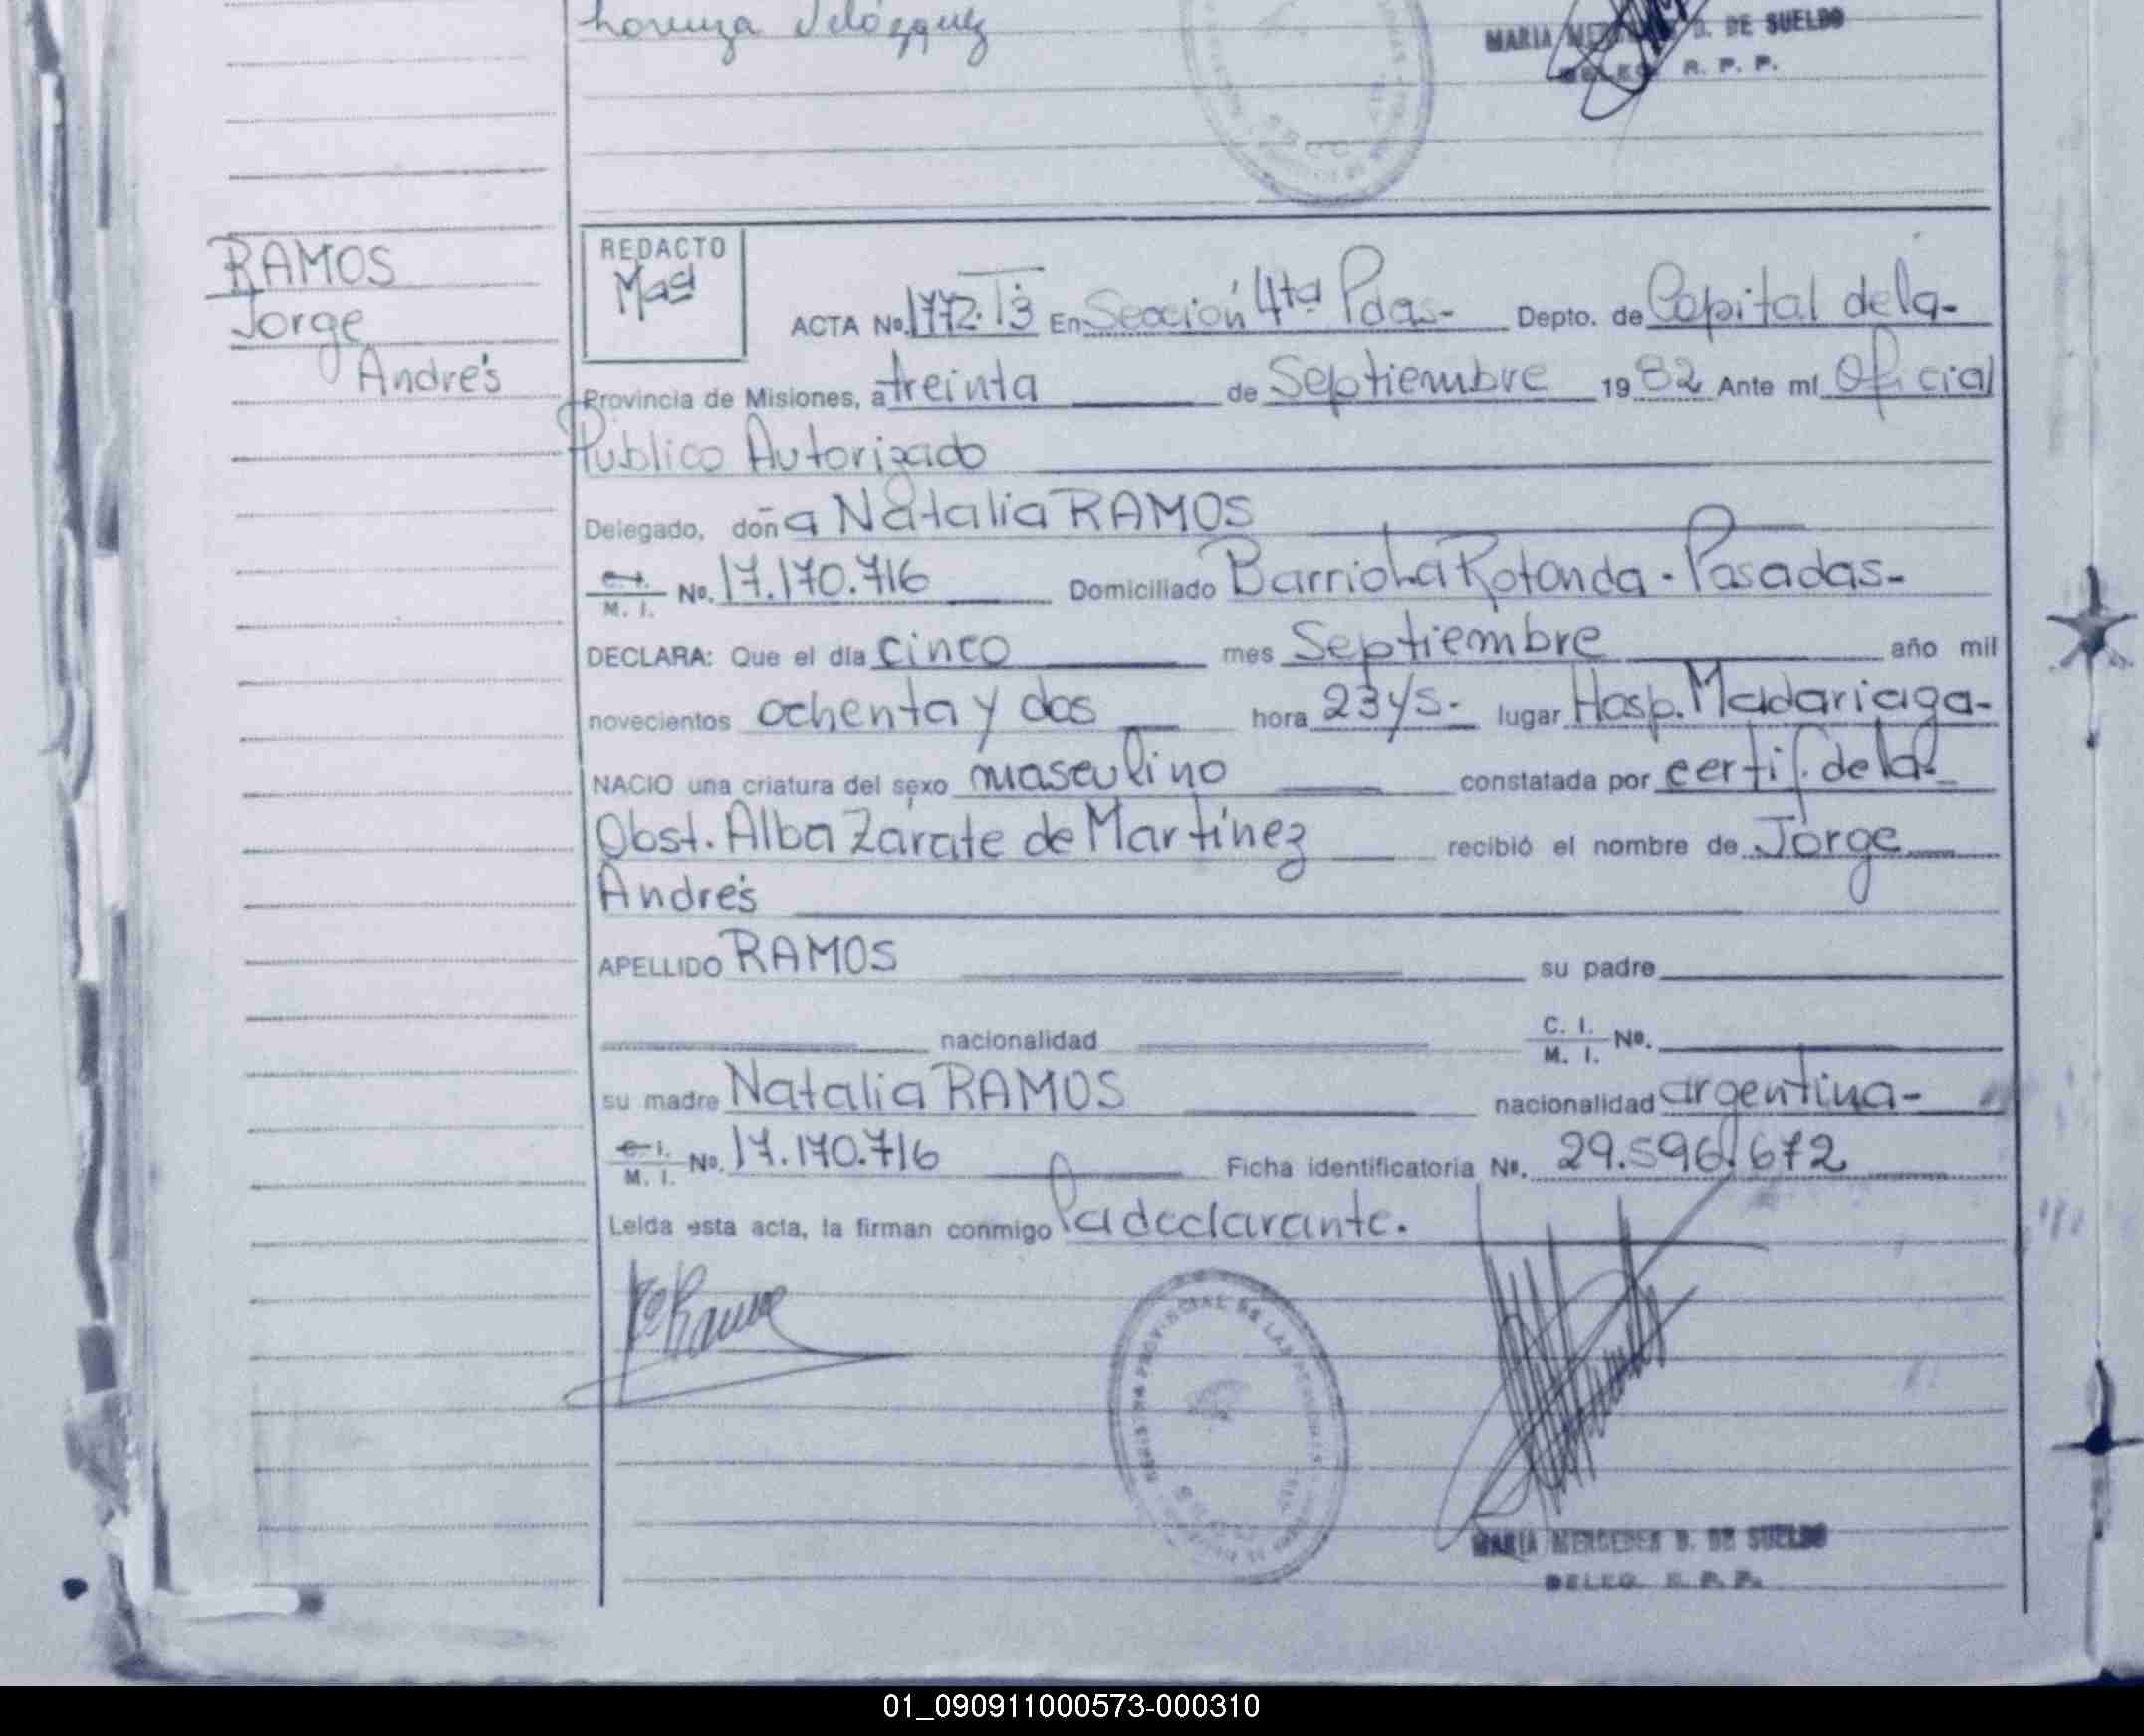 Lorenza Velázquez
MARIA MERCEDES B. DE SUELDO
DELEG. R. P. P.
RAMOS
Jorge
Andrés
REDACTO
ACTA No. 1772. T3 En Sección 4ta Pdas- Depto. de Capital de la-
Provincia de Misiones, a treinta de Septiembre 1982 Ante mí Oficial
Publico Autorizado
Delegado, doña Natalia RAMOS
C. I.
M. I. No. 17.170.716 Domiciliado Barrio La Rotonda - Posadas-
DECLARA: Que el día cinco mes Septiembre año mil
novecientos ochenta y dos hora 23 y 5- lugar Hosp. Madariaga-
NACIO una criatura del sexo masculino constatada por certif. de la
Obst. Alba Zárate de Martínez recibió el nombre de Jorge
Andrés
APELLIDO RAMOS su padre
nacionalidad C. I.
M. I. No.
su madre Natalia RAMOS nacionalidad argentina-
C. I.
M. I. No. 17.170.716 Ficha identificatoria No. 29.596.672
Leída esta acta, la firman conmigo la declarante.
REGISTRO PROVINCIAL DE LAS PERSONAS
MARIA MERCEDES B. DE SUELDO
DELEG. R. P. P.
01_090911000573-000310